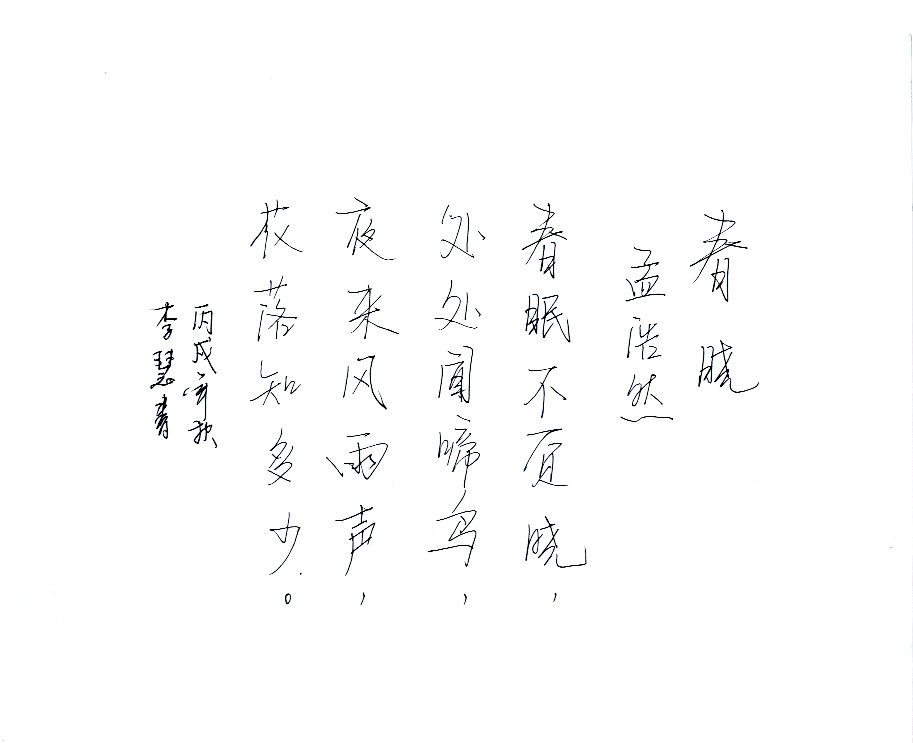 春晓
孟浩然
春眠不觉晓，
处处闻啼鸟，
夜来风雨声，
花落知多少。
丙戌年秋
李慧